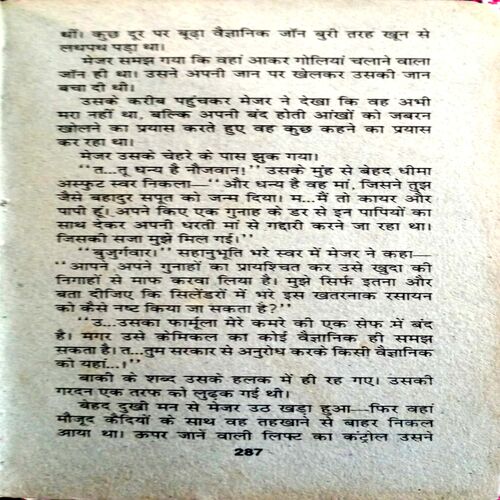 थीं। कुछ दूर पर बूढ़ा वैज्ञानिक जॉन बुरी तरह खून से
लथपथ पड़ा था।
मेजर समझ गया कि वहां आकर गोलियां चलाने वाला
जॉन ही था। उसने अपनी जान पर खेलकर उसकी जान
बचा दी थी।
उसके करीब पहुंचकर मेजर ने देखा कि वह अभी
मरा नहीं था, बल्कि अपनी बंद होती आंखों को जबरन
खोलने का प्रयास करते हुए वह कुछ कहने का प्रयास
कर रहा था।
मेजर उसके चेहरे के पास झुक गया।
‘‘त...तू धन्य है नौजवान!’’ उसके मुंह से बेहद धीमा
अस्फुट स्वर निकला—‘‘और धन्य है वह मां, जिसने तुझ
जैसे बहादुर सपूत को जन्म दिया। म...मैं तो कायर और
पापी हूं। अपने किए एक गुनाह के डर से इन पापियों का
साथ देकर अपनी धरती मां से गद्दारी करने जा रहा था।
जिसकी सजा मुझे मिल गई।’’
‘‘बुजुर्गवार।’’ सहानुभूति भरे स्वर में मेजर ने कहा—
‘‘आपने अपने गुनाहों का प्रायश्चित कर उसे खुदा की
निगाहों से माफ करवा लिया है। मुझे सिर्फ इतना और
बता दीजिए कि सिलेंडरों में भरे इस खतरनाक रसायन
को कैसे नष्ट किया जा सकता है?’’
‘‘उ...उसका फार्मूला मेरे कमरे की एक सेफ में बंद
है। मगर उसे केमिकल का कोई वैज्ञानिक ही समझ
सकता है। त...तुम सरकार से अनुरोध करके किसी वैज्ञानिक
को यहां...।’’
बाकी के शब्द उसके हलक में ही रह गए। उसकी
गरदन एक तरफ को लुढ़क गई थी।
बेहद दुखी मन से मेजर उठ खड़ा हुआ—फिर वहां
मौजूद कैदियों के साथ वह तहखाने से बाहर निकल
आया था। ऊपर जानें वाली लिफ्ट का कंट्रोल उसने
287